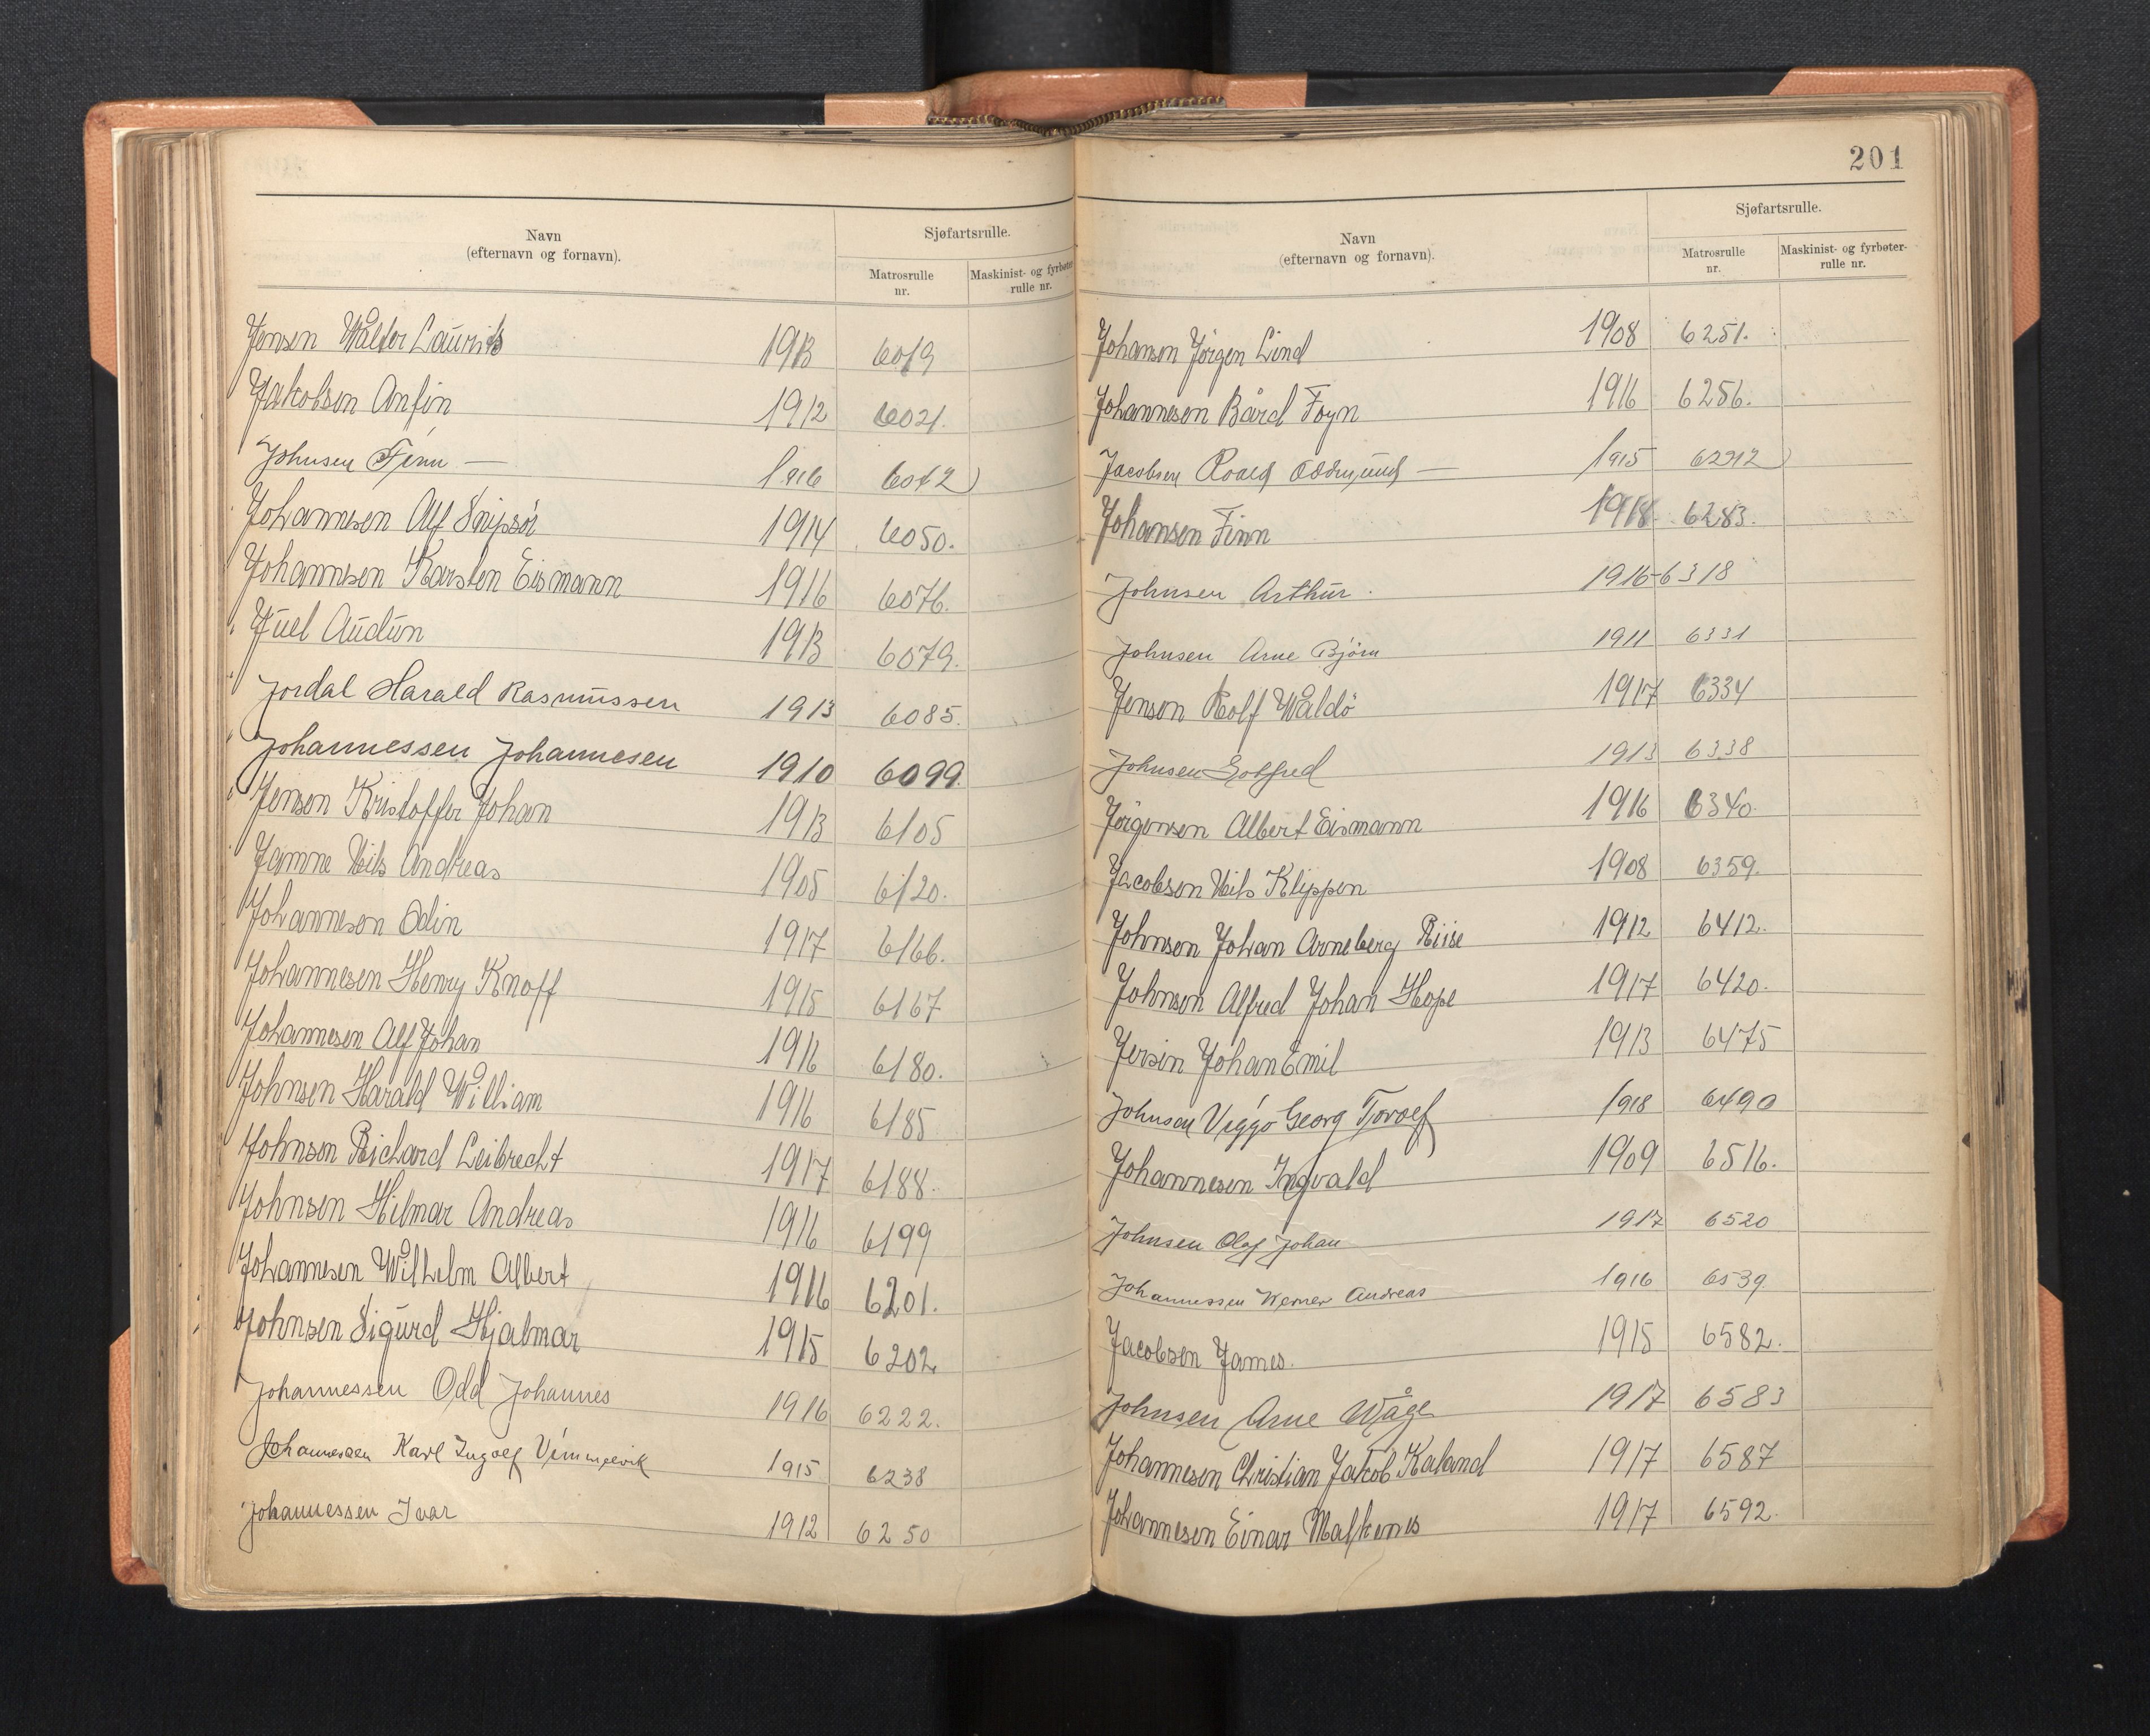 Navn
(efternavn og fornavn).
Sjøfartsrulle.
Matrosrulle
nr.
Maskinist- og fyrbøter-
rulle nr.
Jensen Walter Laurits 1913 6019
Jakobsen Anfin 1912 6021.
Johnsen Finn — 1916
Johannesen Alf Snipsör 1914 6050.
Johannesen Karsten Eismann 1916 6076.
Juel Audun 1913 6079.
Jordal Harald Rasmussen 1913 6085.
Johannessen Johannesen 1910 6099.
Jensen Kristoffer Johan 1913 6105
Jamne Nils Andreas 1905 6120.
Johannesen Odin 1917 6166.
Johannesen Henry Knoff 1915 6167
Johannesen Alf Johan 1916 6180.
Johnsen Harald William 1916 6185
Johnsen Richard Leibrecht 1917 6188.
Johnsen Hilmar Andreas 1916 6199
Johannesen Wilhelm Albert 1916 6201.
Johnsen Sigurd Hjalmar 1915 6202.
Johannessen Odd Johannes 1916 6222.
Johannessen Karl Ingolf 1915 6238
Johannessen Ivar 1912 6250
201
Navn
(efternavn og fornavn).
Sjøfartsrulle.
Matrosrulle
nr.
Maskinist- og fyrbøter-
rulle nr.
Johansen Jörgen Lind 1908 6251.
Johannesen Bård Foyn 1916 6256.
Jacobsen Roald Oddmund — 1915
Johansen Finn 1918 6283.
Johnsen Arthur. 1916 6318
Johnsen Arne Bjørn 1911 6331
Jensen Rolf Waldö 1917 6334
Johnsen Gotfred 1913 6338
Jörgensen Albert Eismann 1916 6340.
Jacobsen Nils Klippen 1908 6359.
Johnsen Johan Arneberg Riise 1912 6412.
Johnsen Alfred Johan Hope 1917 6420.
Jersin Johan Emil 1913 6475
Johnsen Viggo Georg Torolf 1918 6490
Johannesen Ingvald 1909 6516.
Johnsen Olaf Johan 1917 6520
Johannessen Werner Andreas 1916 6539.
Jacobsen James. 1915 6582.
Johnsen Arne Wåge 1917 6583
Johannesen Christian Jakob Kaland 1917 6587
Johannesen Einar 1917 6592.